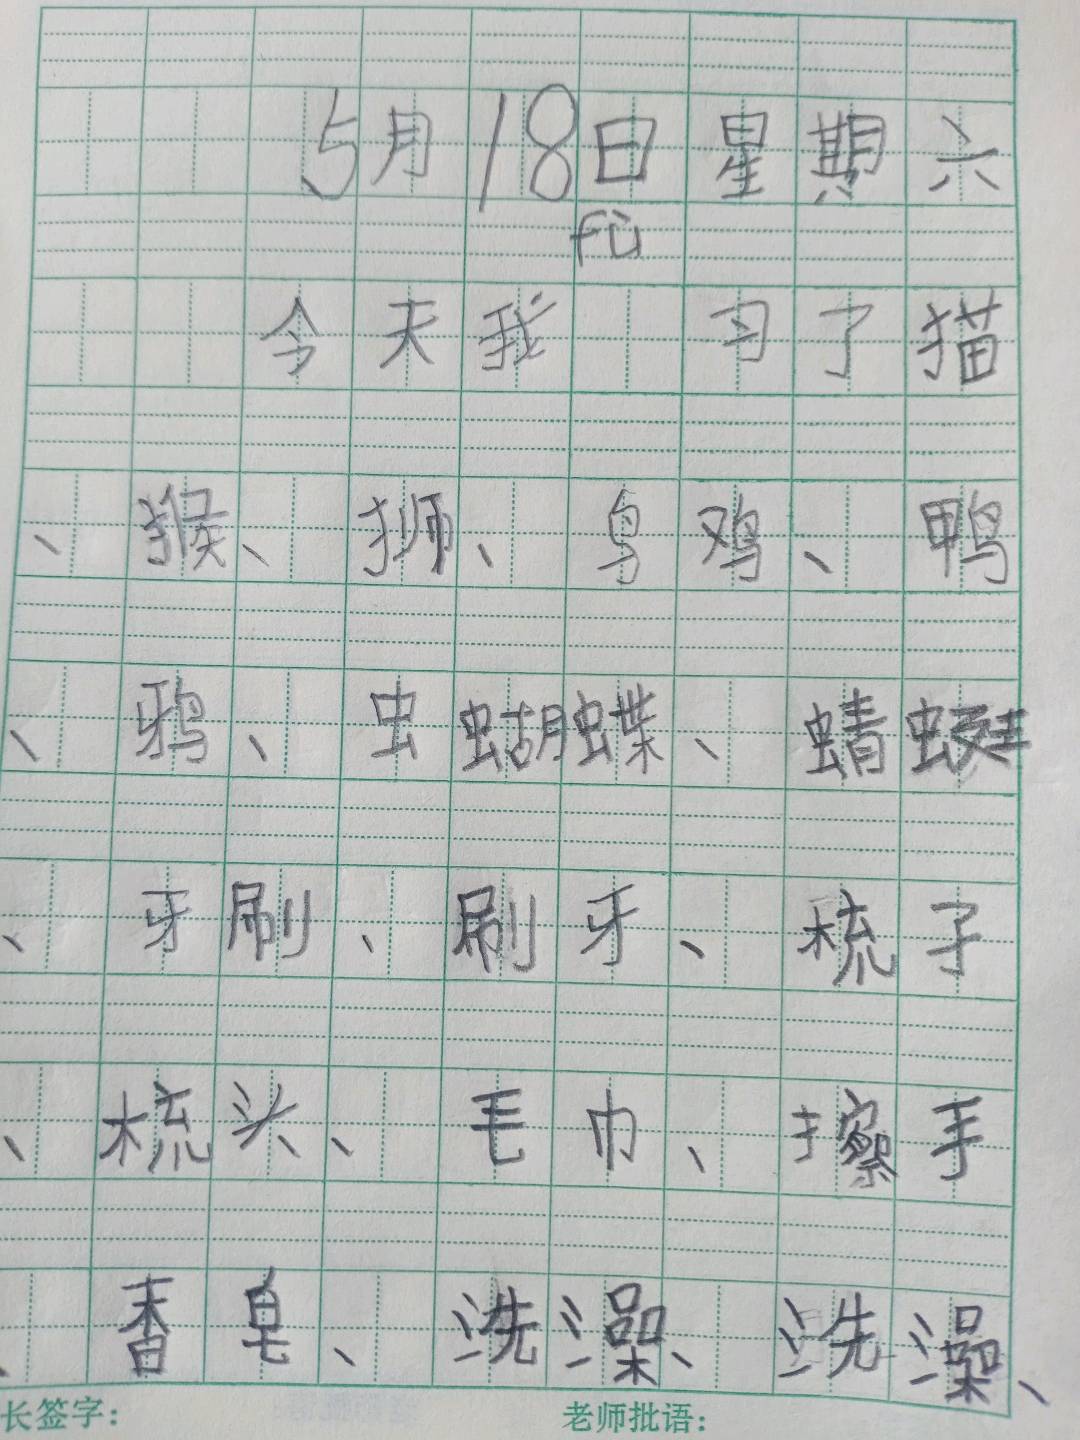 5月18日星期六
fù
今天我 习了猫
、猴、狮、鸟鸡、鸭
、鸦、虫蝴蝶、蜻蜓
、牙刷、刷牙、梳子
、梳头、毛巾、擦手
、香皂、洗澡、洗澡、
长签字： 老师批语：